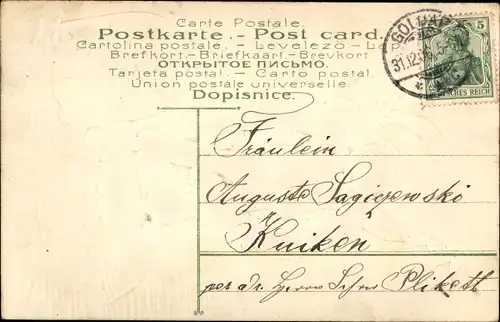 Carte Postale.
Postkarte. - Post card.
Cartolina postale. - Levelező - La
Brefkort. - Briefkaart. - Brevkort
ОТКРЫТОЕ ПИСЬМО.
Tarjeta postal. - Carto postal.
Union postale universelle.
Dopisnice.
5
31.12.06.
DEUTSCHES REICH
Fräulein
Auguste Sagijewski
Kuiken
per adr. Herrn Plikett